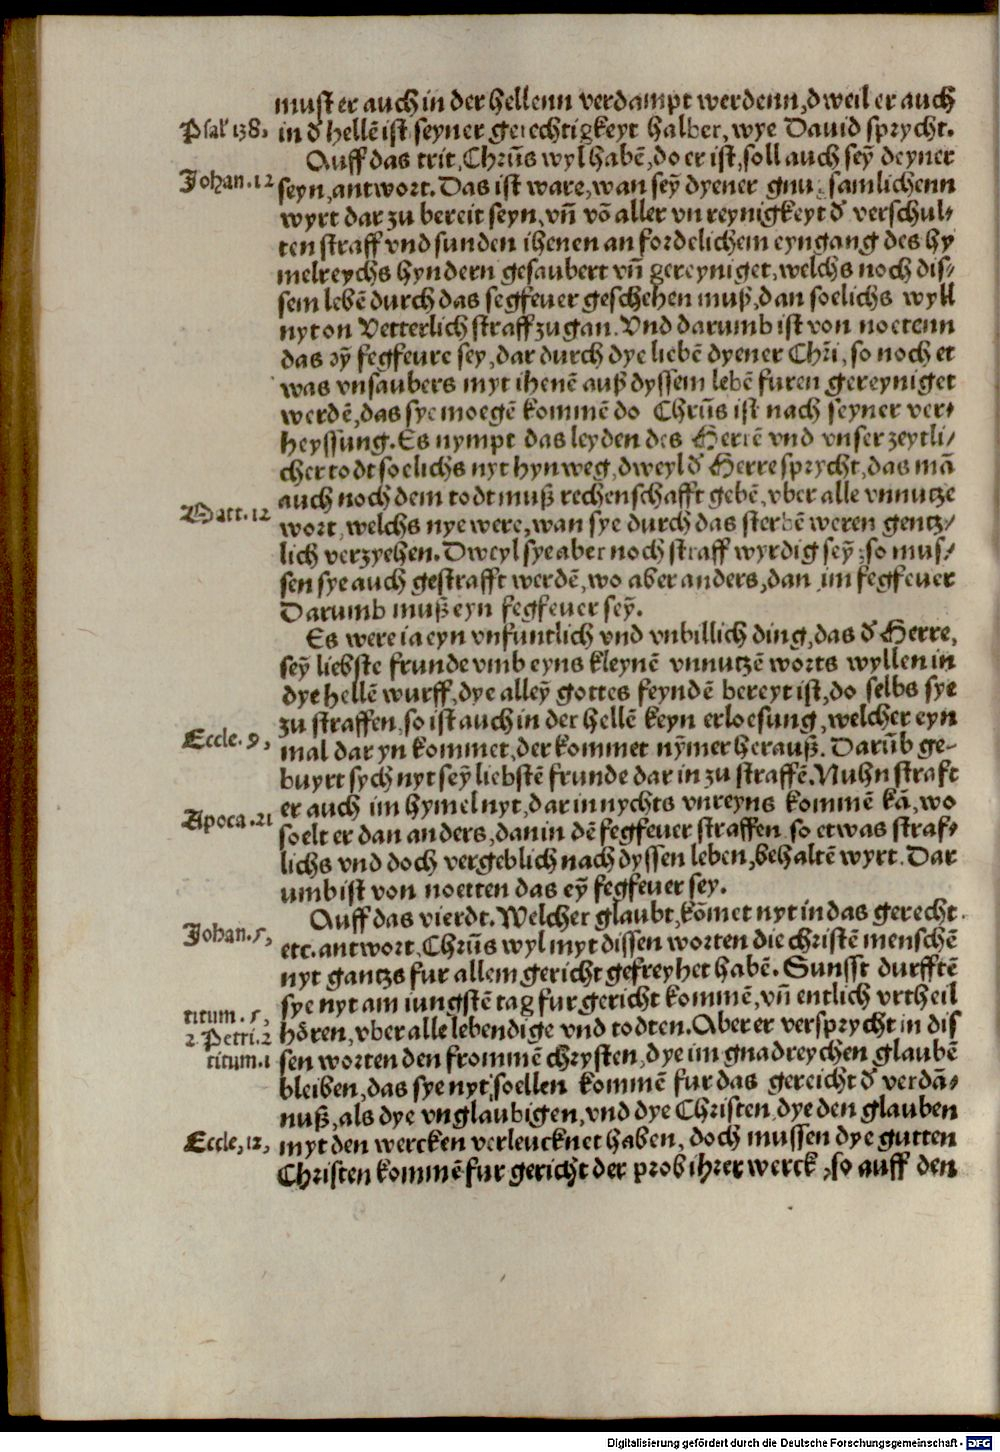 must er auch in der hellenn verdampt werdenn, dweil er auch
Psal 138, in d̓ hellē ist seyner gerechtigkeyt halber, wye Dauid sprycht.
Auff das trit, Chrūs wyl habē, do er ist, soll auch sey̅ deyner
Johan. 12 seyn, antwort. Das ist ware, wan sey̅ dyener gnu samlichenn
wyrt dar zu bereit seyn, vn̄ vō aller vn reynigkeyt d̓ verschul⸗
ten straff vnd sunden ihenen an fordelichem eyngang des hy
melreychs hyndern gesaubert vn̄ gereyniget, welchs noch dis⸗
sem lebē durch das fegfeuer geschehen muß, dan soelichs wyll
nyt on Vetterlich straff zu gan. Vnd darumb ist von noetenn
das ey̅ fegfeure sey, dar durch dye liebē dyener Chr̄i, so noch et
was vnsaubers myt ihenē auß dyssem lebē furen gereyniget
werdē, das sye moegē kommē do Chrūs ist nach seyner ver⸗
heyssung. Es nympt das leyden des Herrē vnd vnser zeytli⸗
cher todt soelichs nyt hynweg, dweyl d̓ Herre sprycht, das mā
auch noch dem todt muß rechenschafft gebē, vber alle vnnutze
Matt. 12 wort, welchs nye were, wan sye durch das sterbē weren gentz⸗
lich verzyehen. Dweyl sye aber noch straff wyrdig sey̅, so mus⸗
sen sye auch gestrafft werdē, wo aber anders, dan im fegfeuer
Darumb muß eyn fegfeuer sey̅.
Es were ia eyn vnfuntlich vnd vnbillich ding, das d̓ Herre,
sey̅ liebste frunde vmb eyns kleynē vnnutzē worts wyllen in
dye hellē wurff, dye alley̅ gottes feyndē bereyt ist, do selbs sye
zu straffen, so ist auch in der hellē keyn erloesung, welcher eyn
Eccle. 9, mal dar yn kommet, der kommet ny̅mer herauß. Darūb ge⸗
buyrt sych nyt sey̅ liebstē frunde dar in zu straffē. Nuhn straft
er auch im hymel nyt, dar in nychts vnreyns kommē kā, wo
Apoca. 21 soelt er dan anders, dan in dē fegfeuer straffen, so etwas straf⸗
lichs vnd doch vergeblich nach dyssen leben, behaltē wyrt. Dar
umb ist von noetten das ey̅ fegfeuer sey.
Auff das vierdt. Welcher glaubt, kōmet nyt in das gerecht.
Johan. 5, etc. antwort, Chrūs wyl myt dissen worten die christē menschē
nyt gantzs fur allem gericht gefreyhet habē. Sunsst durfftē
sye nyt am iungstē tag fur gericht kommē, vn̄ entlich vrtheil
titum. 5, hören, vber alle lebendige vnd todten. Aber er versprycht in dis
2 Petri. 2
titum. 1 sen worten den frommē chrysten, dye im gnadreychen glaubē
bleiben, das sye nyt soellen kommē fur das gereicht d̓ verdā⸗
nuß, als dye vnglaubigen, vnd dye Christen, dye den glauben
Eccle, 12, myt den wercken verleucknet haben, doch mussen dye gutten
Christen kommē fur gericht der prob ihrer werck, so auff den
Digitalisierung gefördert durch die Deutsche Forschungsgemeinschaft - DFG